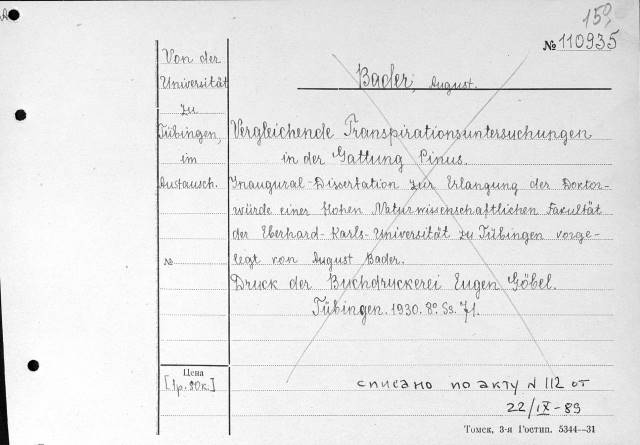 150
№ 110935
Von der
Universität
zu
Tübingen,
im
Austausch.
Bader, August.
Vergleichende Transpirationsuntersuchungen
in der Gattung Pinus.
Inaugural-Dissertation zur Erlangung der Doktor-
würde einer Hohen Naturwisschenschaftlichen Fakultät
der Eberhard-Karls-Universität zu Tübingen vorge-
legt von August Bader.
Druck der Buchdruckerei Eugen Göbel.
Tübingen. 1930. 8º. Ss. 71.
№
Цена
[1р. 90к.]
списано по акту N 112 от
22/IX-89
Томск, 3-я Гостип. 5344—31